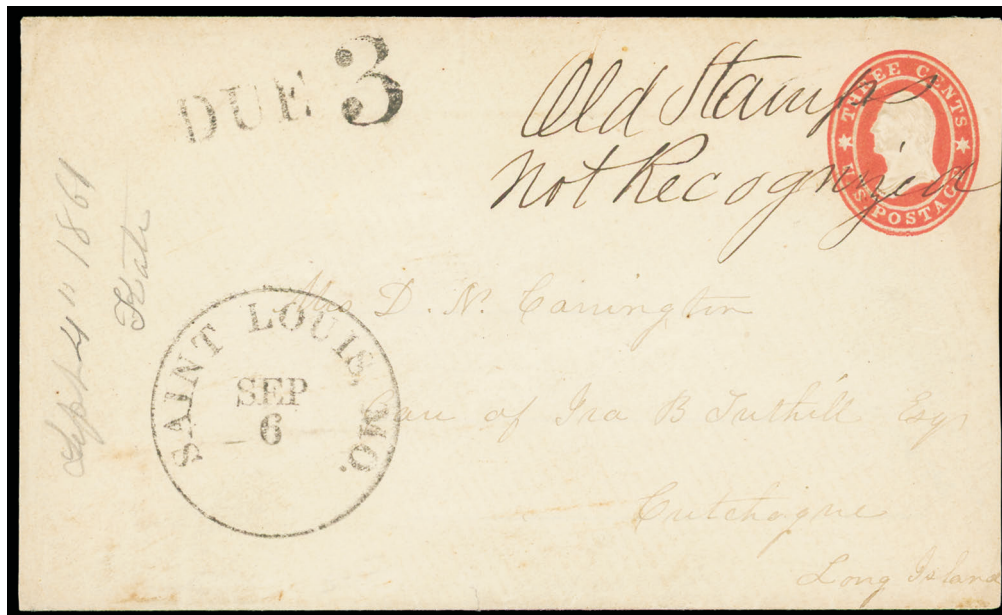 DUE 3
Old Stamps
not Recognized
THREE CENTS
U.S. POSTAGE
Sept 4" 1861
Kate
SAINT LOUIS, MO.
SEP
6
Mrs D. N. Carrington
Care of Ira B Tuthill Esqr
Cutchogue
Long Island